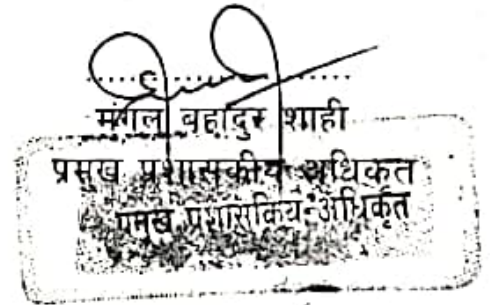 मंगल बहादुर शाही
प्रमुख प्रशासकीय अधिकृत
प्रमुख प्रशासकिय अधिकृत